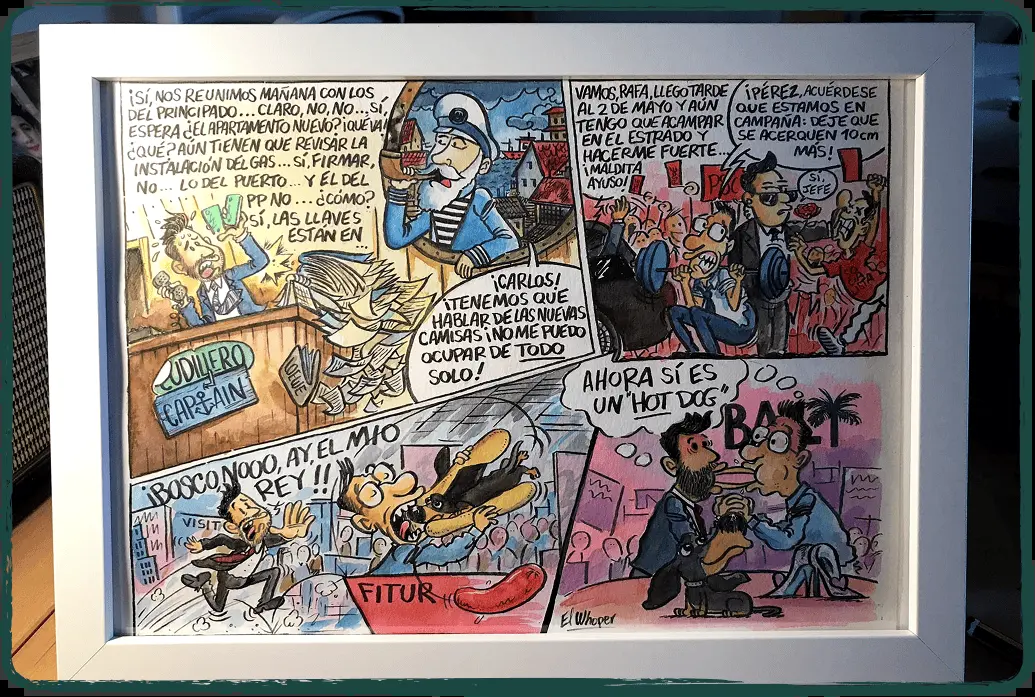 ¡SÍ, NOS REUNIMOS MAÑANA CON LOS
DEL PRINCIPADO... CLARO, NO, NO... SÍ,
ESPERA ¿EL APARTAMENTO NUEVO? ¡QUÉ VA!
¿QUÉ? AÚN TIENEN QUE REVISAR LA
INSTALACIÓN DEL GAS... SÍ, FIRMAR,
NO... LO DEL PUERTO... Y ÉL DEL
PP NO... ¿CÓMO?
SÍ, LAS LLAVES
ESTÁN EN
...
CUDILLERO
CAPTAIN
¡CARLOS!
¡TENEMOS QUE
HABLAR DE LAS NUEVAS
CAMISAS! ¡NO ME PUEDO
OCUPAR DE TODO
SOLO!
VAMOS, RAFA, LLEGO TARDE
AL 2 DE MAYO Y AÚN
TENGO QUE ACAMPAR
EN EL ESTRADO Y
HACERME FUERTE...
¡MALDITA
AYUSO!
¡PÉREZ, ACUÉRDESE
QUE ESTAMOS EN
CAMPAÑA: DEJE QUE
SE ACERQUEN 10 cm
MÁS!
SÍ,
JEFE
¡BOSCO, NOOO, AY, EL MIO
REY!!
VISIT
FITUR
AHORA SÍ ES
UN "HOT DOG"
El Whoper